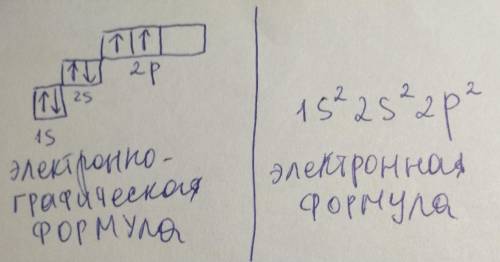 ↑↓ ↑↓ ↑ ↑
1S 2S 2p
электронно-
графическая
формула
1S² 2S² 2p²
электронная
формула